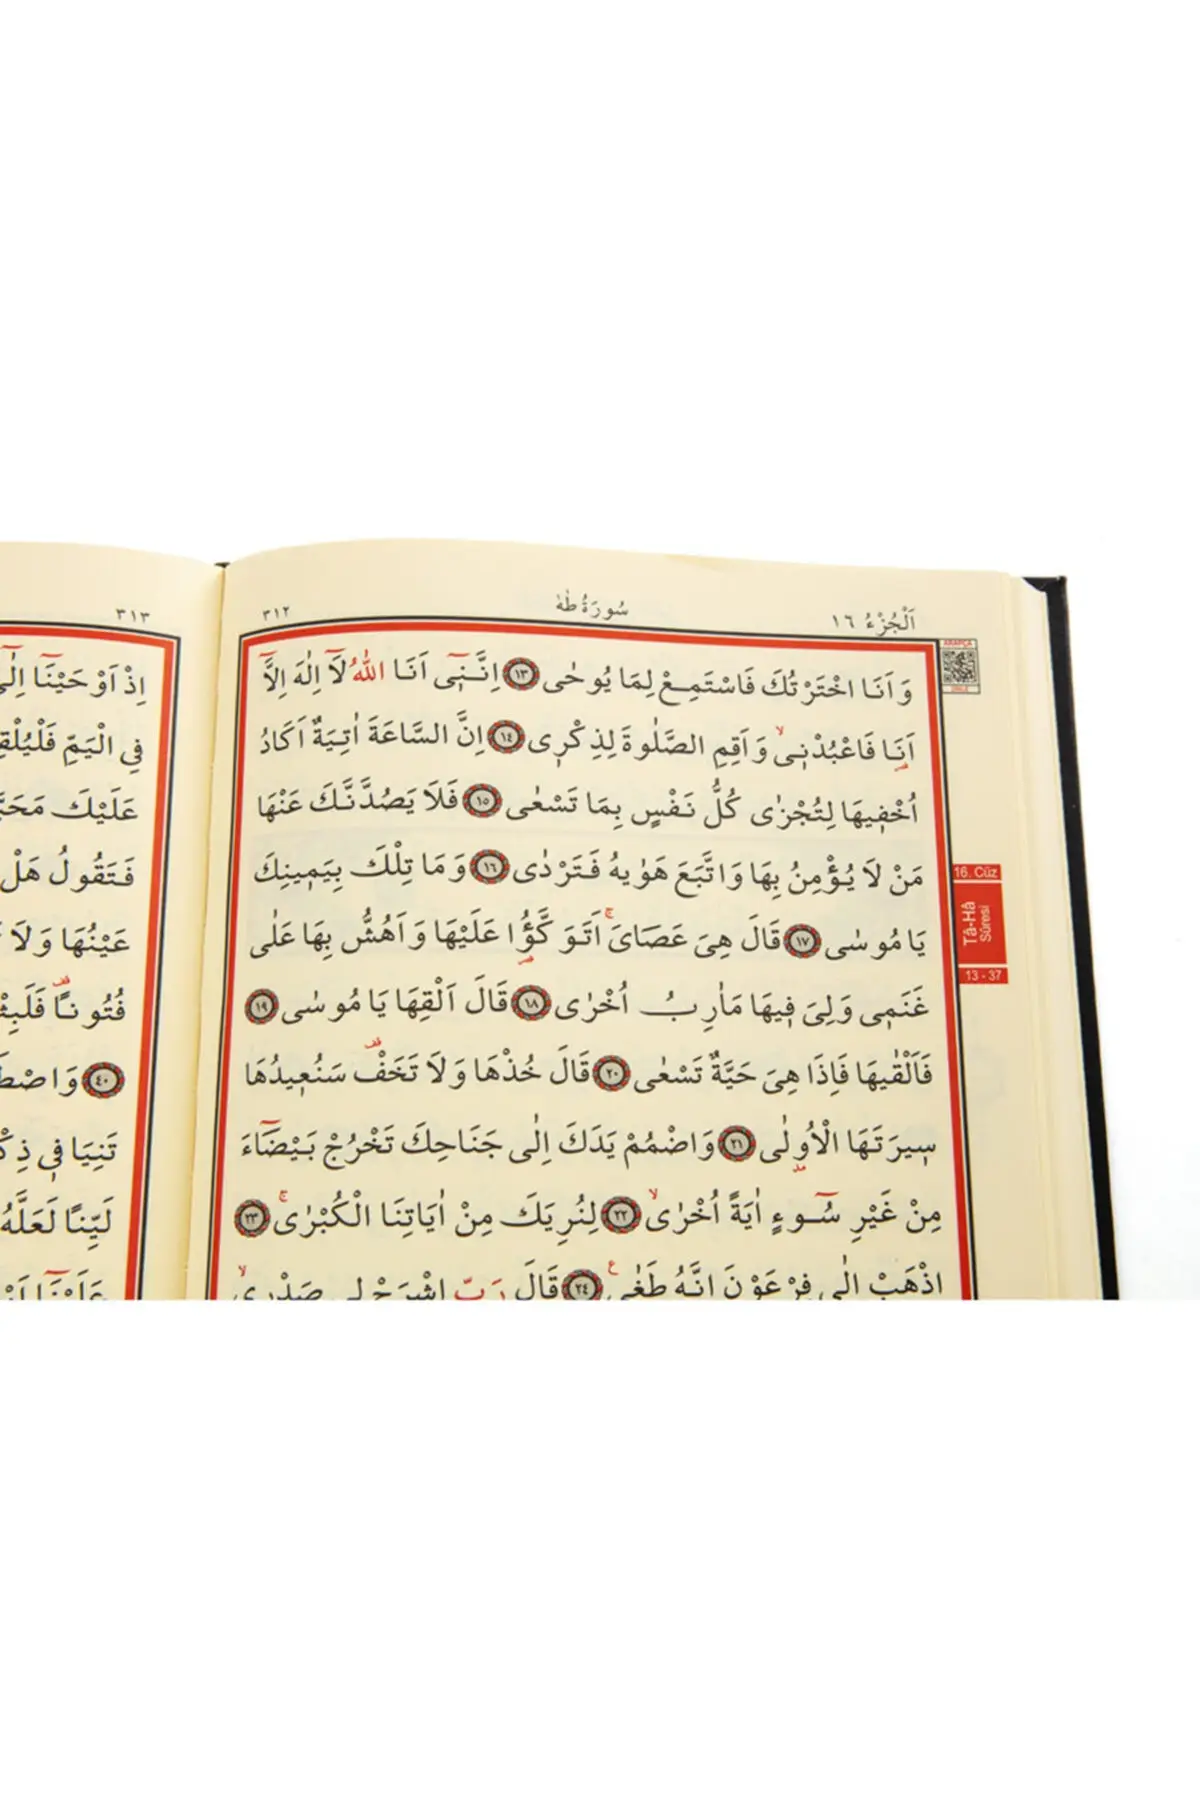 اَلْجُزْءُ ١٦
سُورَةُ طٰهٰ
٣١٢
وَاَنَا اخْتَرْتُكَ فَاسْتَمِعْ لِمَا يُوحٰى ﴿١٣﴾ اِنَّن۪ٓى اَنَا اللّٰهُ لَٓا اِلٰهَ اِلَّٓا
اَنَا۬ فَاعْبُدْن۪ىۙ وَاَقِمِ الصَّلٰوةَ لِذِكْر۪ى ﴿١٤﴾ اِنَّ السَّاعَةَ اٰتِيَةٌ اَكَادُ
اُخْف۪يهَا لِتُجْزٰى كُلُّ نَفْسٍ بِمَا تَسْعٰى ﴿١٥﴾ فَلَا يَصُدَّنَّكَ عَنْهَا
مَنْ لَا يُؤْمِنُ بِهَا وَاتَّبَعَ هَوٰيهُ فَتَرْدٰى ﴿١٦﴾ وَمَا تِلْكَ بِيَم۪ينِكَ
يَا مُوسٰى ﴿١٧﴾ قَالَ هِىَ عَصَاىَۚ اَتَوَكَّؤُ۬ا عَلَيْهَا وَاَهُشُّ بِهَا عَلٰى
غَنَم۪ى وَلِىَ ف۪يهَا مَاٰرِبُ اُخْرٰى ﴿١٨﴾ قَالَ اَلْقِهَا يَا مُوسٰى ﴿١٩﴾
فَاَلْقٰيهَا فَاِذَا هِىَ حَيَّةٌ تَسْعٰى ﴿٢٠﴾ قَالَ خُذْهَا وَلَا تَخَفْ سَنُع۪يدُهَا
س۪يرَتَهَا الْاُو۫لٰى ﴿٢١﴾ وَاضْمُمْ يَدَكَ اِلٰى جَنَاحِكَ تَخْرُجْ بَيْضَٓاءَ
مِنْ غَيْرِ سُٓوءٍ اٰيَةً اُخْرٰىۙ ﴿٢٢﴾ لِنُرِيَكَ مِنْ اٰيَاتِنَا الْكُبْرٰىۚ ﴿٢٣﴾
اِذْهَبْ اِلٰى فِرْعَوْنَ اِنَّهُ طَغٰى ﴿٢٤﴾ قَالَ رَبِّ اشْرَحْ ل۪ى صَدْر۪ىۙ
ARAPÇA
16. Cüz
Tâ-Hâ
Sûresi
13 - 37
٣١٣
اِذْ اَوْحَيْنَٓا اِلٰٓى
فِي الْيَمِّ فَلْيُلْقِ
عَلَيْكَ مَحَبَّ
فَتَقُولُ هَلْ
عَيْنُهَا وَلَا
فُتُونًا فَلَبِثْ
﴿٤٠﴾ وَاصْطَ
تَنِيَا ف۪ى ذِكْ
لَيِّنًا لَعَلَّهُ
عَلَيْنَٓا اَوْ